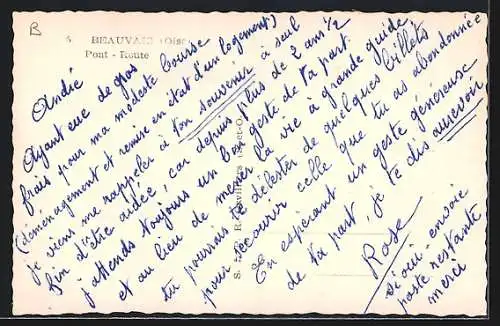 B
BEAUVAIS (Oise)
Pont - Route
André
Ayant eue de gros
frais pour ma modeste bourse
(déménagement et remise en état d'un logement)
je viens me rappeler à ton souvenir à seul
fin d'être aidée, car depuis plus de 2 ans 1/2
j'attends toujours un bon geste de ta part
et au lieu de mener la vie à grande guide
tu pourrais te délester de quelques billets
pour secourir celle que tu as abondonnée
En espérant un geste généreuse
de ta part, je te dis aurevoir
Rose
si oui envoie
poste restante
merci